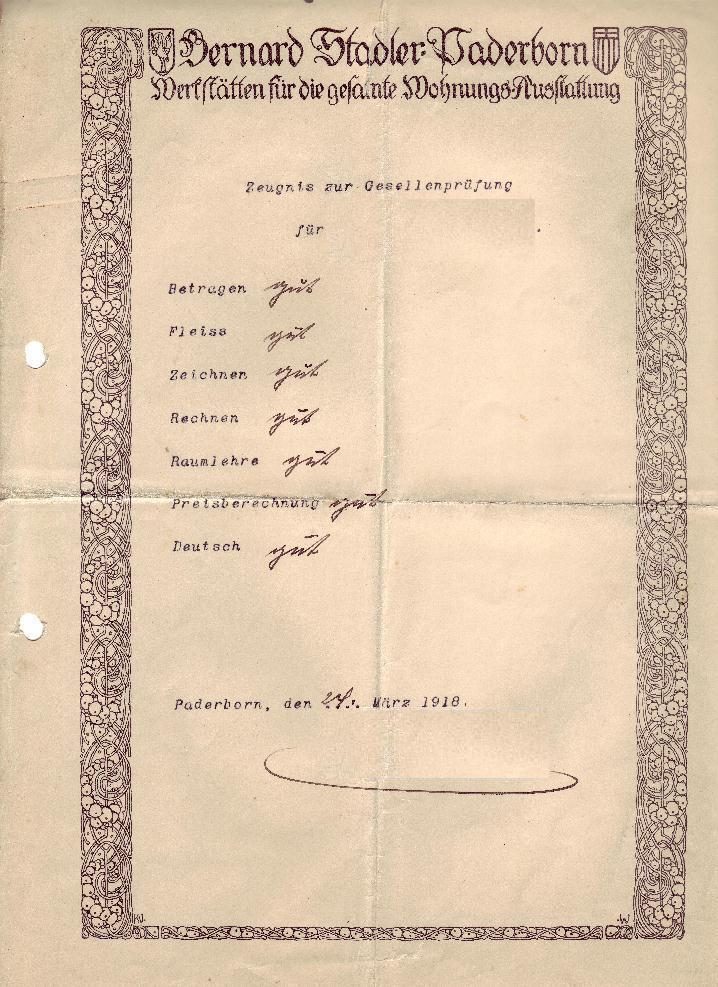 Bernard Stadler: Paderborn
Werkstätten für die gesamte Wohnungs-Ausstattung
Zeugnis zur Gesellenprüfung
für
Betragen gut
Fleiss gut
Zeichnen gut
Rechnen gut
Raumlehre gut
Preisberechnung gut
Deutsch gut
Paderborn, den März 1918.